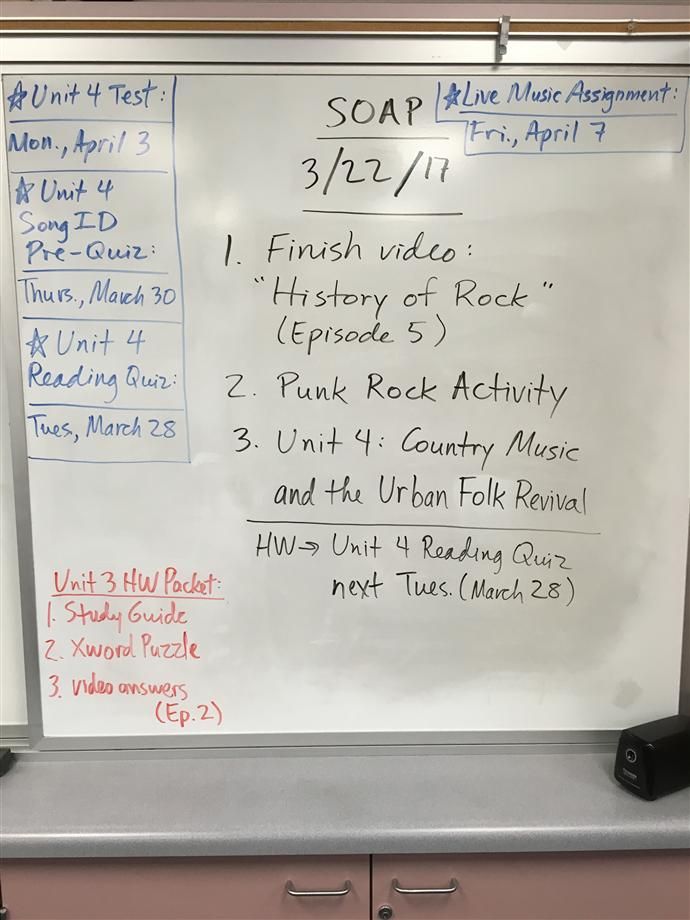 ☆ Unit 4 Test:
Mon., April 3
☆ Unit 4
Song ID
Pre-Quiz:
Thurs., March 30
☆ Unit 4
Reading Quiz:
Tues, March 28
SOAP
3/22/17
☆ Live Music Assignment:
Fri., April 7
1. Finish video:
"History of Rock"
(Episode 5)
2. Punk Rock Activity
3. Unit 4: Country Music
and the Urban Folk Revival
HW→ Unit 4 Reading Quiz
next Tues. (March 28)
Unit 3 HW Packet:
1. Study Guide
2. Xword Puzzle
3. video answers
(Ep. 2)